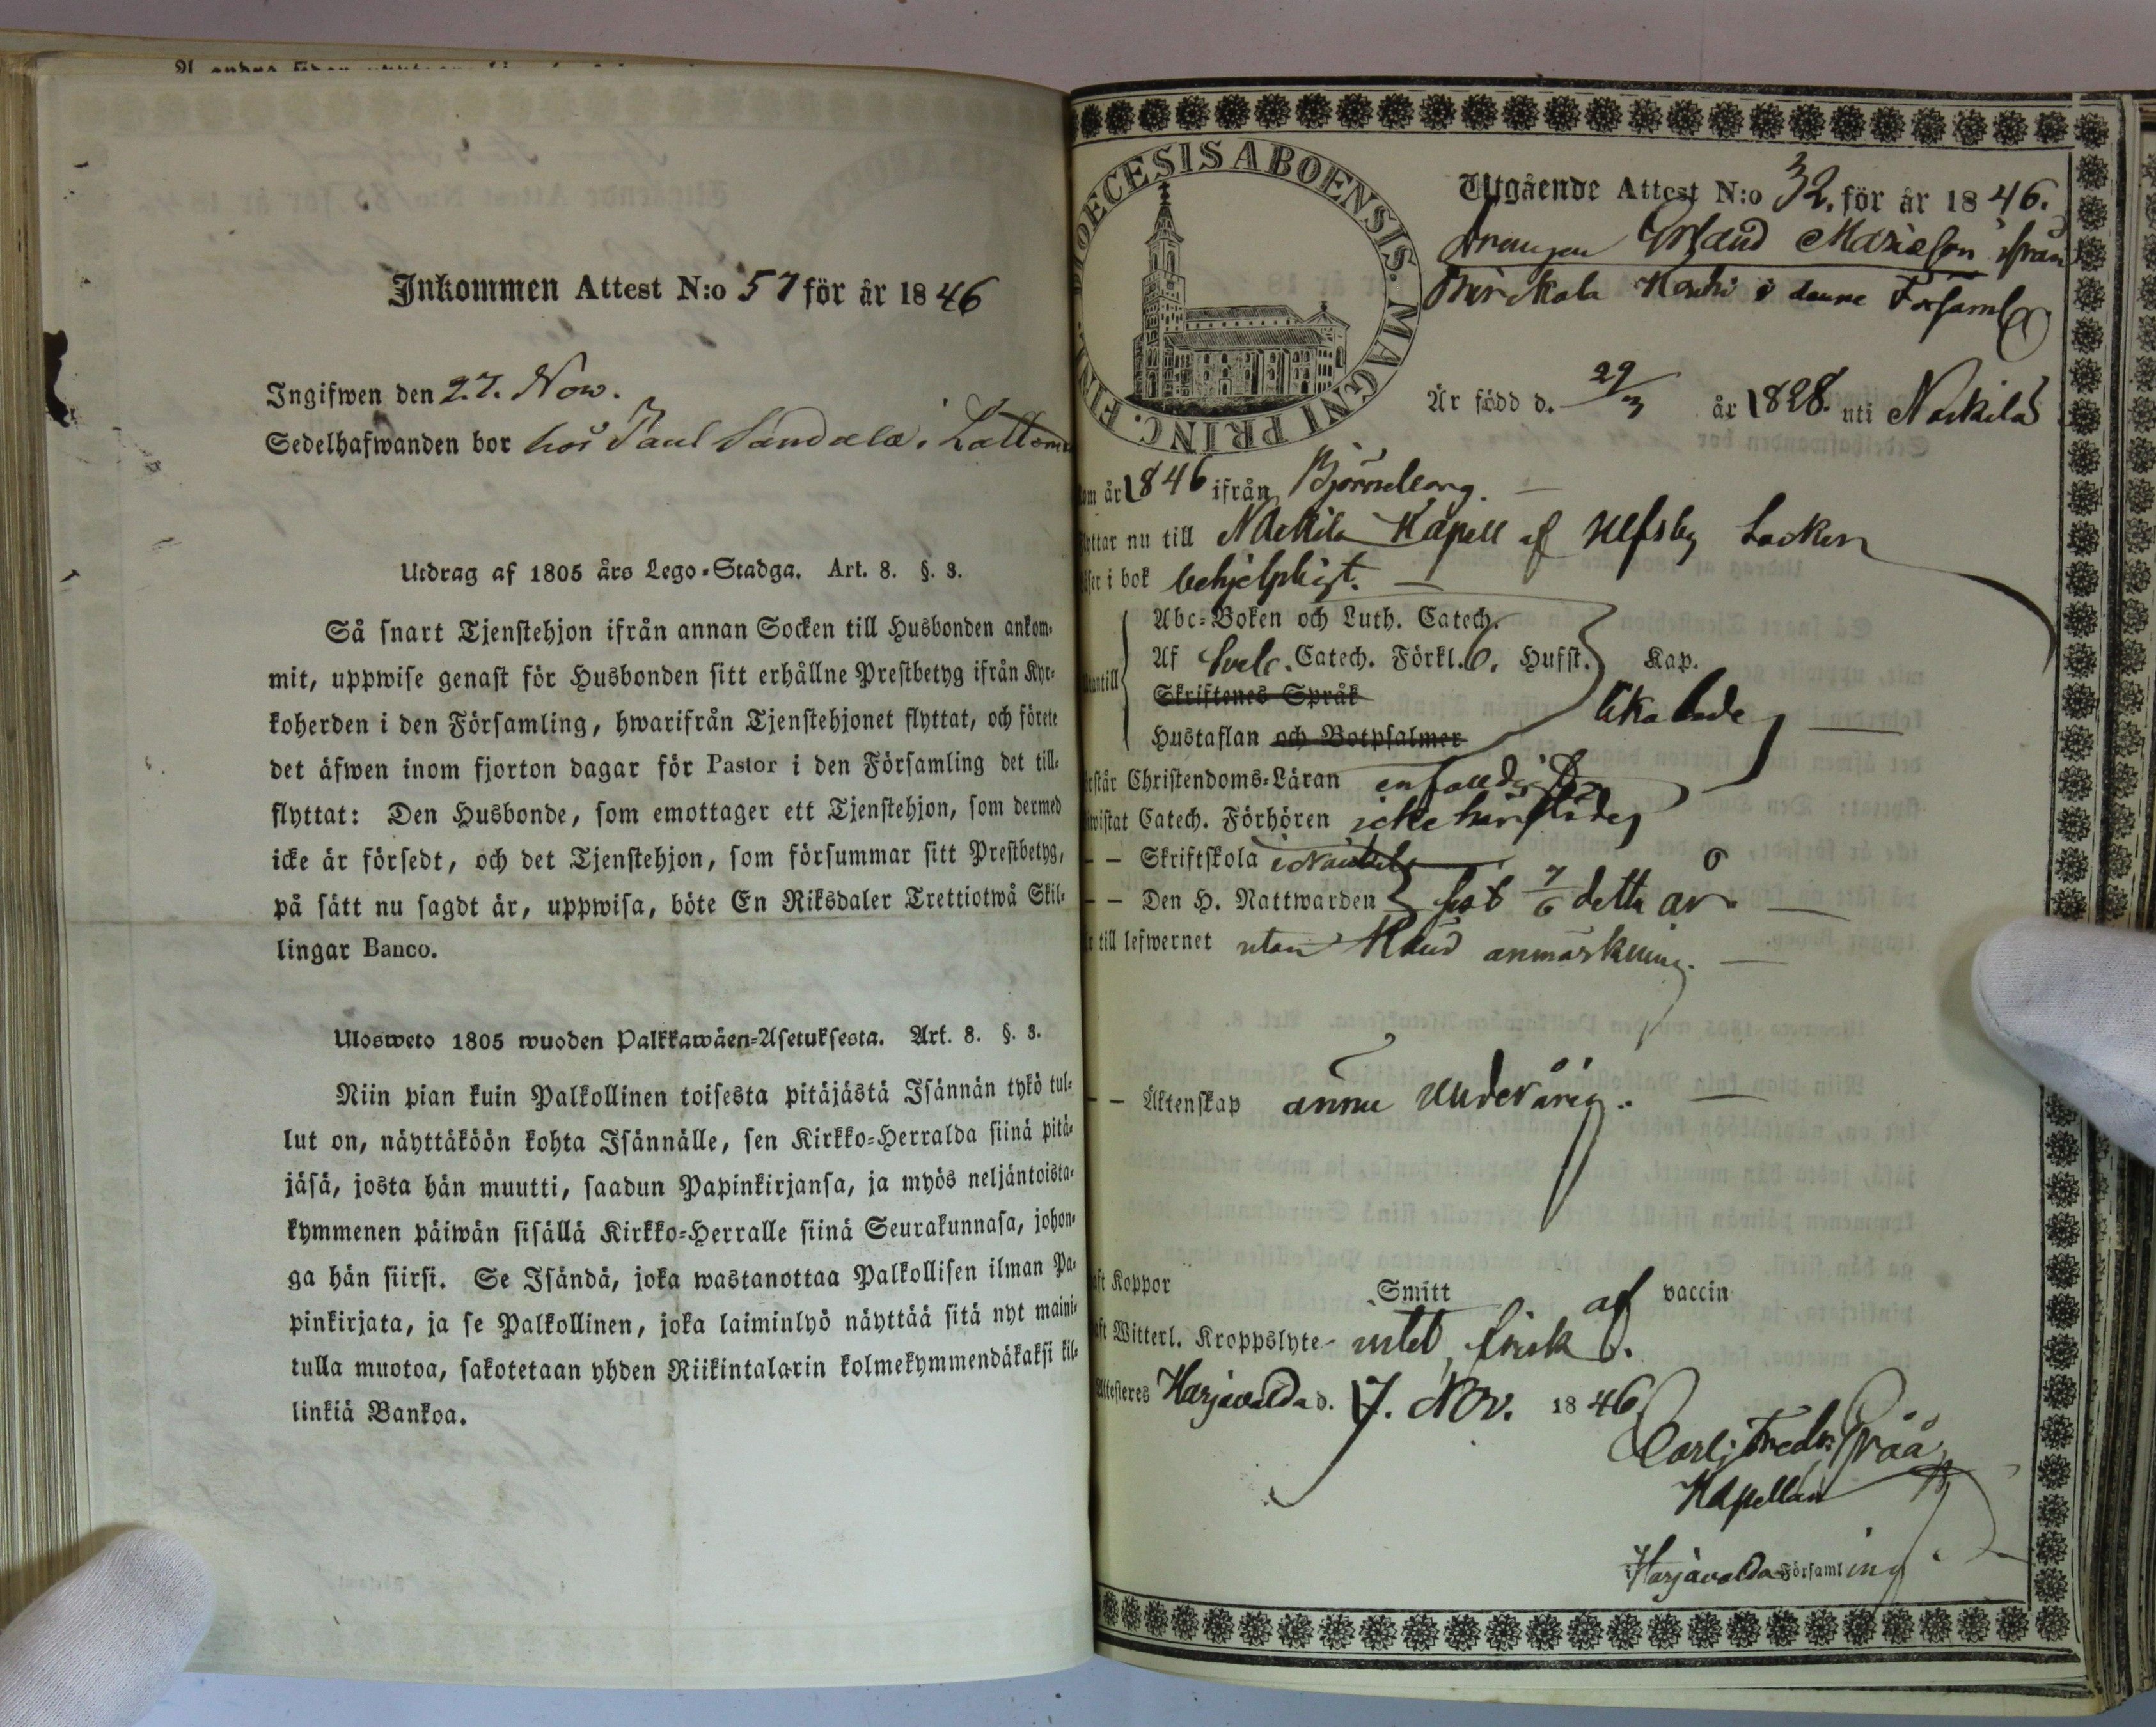 Inkommen Attest N:o 57 för år 1846
Ingifwen den 27. Nov.
Sedelhafwanden bor hos Paul Sandala i
Utdrag af 1805 års Lego-Stadga. Art. 8. §. 3.
Så snart Tjenstehjon ifrån annan Socken till Husbonden ankom-
mit, uppwise genast för Husbonden sitt erhållne Prestbetyg ifrån Kyr-
koherden i den Församling, hwarifrån Tjenstehjonet flyttat, och förete
det äfwen inom fjorton dagar för Pastor i den Församling det till-
flyttat: Den Husbonde, som emottager ett Tjenstehjon, som dermed
icke är försedt, och det Tjenstehjon, som försummar sitt Prestbetyg,
på sätt nu sagdt är, uppwisa, böte En Riksdaler Trettiotwå Skil-
lingar Banco.
Ulosweto 1805 wuoden Palkkawäen-Asetuksesta. Art. 8. §. 3.
Niin pian kuin Palkollinen toisesta pitäjästä Isännän tykö tul-
lut on, näyttäköön kohta Isännälle, sen Kirkko-Herralda siinä pitä-
jäsä, josta hän muutti, saadun Papinkirjansa, ja myös neljäntoista-
kymmenen päiwän sisällä Kirkko-Herralle siinä Seurakunnasa, johon-
ga hän siirsi. Se Isändä, joka wastanottaa Palkollisen ilman Pa-
pinkirjata, ja se Palkollinen, joka laiminlyö näyttää sitä nyt maini-
tulla muotoa, sakotetaan yhden Riikintalarin kolmekymmendäkaksi kil-
linkiä Bankoa.
DIOECESIS ABOENSIS. MAGNI PRINC. FINL.
Utgående Attest N:o 32. för år 1846.
Drengen Erland ifrån
i denne Församl
Är född d. 29/3 år 1828. uti Nackila
om år 1846 ifrån Björneborg.
nu till Nackila Kapell af Ulfsby Socken
i bok behjelpligt.
Abc-Boken och Luth. Catech.
Af Svel. Catech. Förkl. Husst. Kap.
Skriftenes Språk
Lika lede
Hustaflan och Botpsalmer
Christendoms-Läran enfaldigt
Catech. Förhören icke härstädes
— — Skriftskola i Nackila
— — Den H. Nattwarden sist 7/6 detta år.
till lefwernet utan känd anmärkning.
— — Äktenskap ännu underårig.
Koppor Smitt af vaccin
Witterl. Kroppslyte - intet, frisk
Attesteres Harjavalda d. 17. Nov. 1846
Carl Fredr. Gråå
Kapellan
Harjavalda Församling